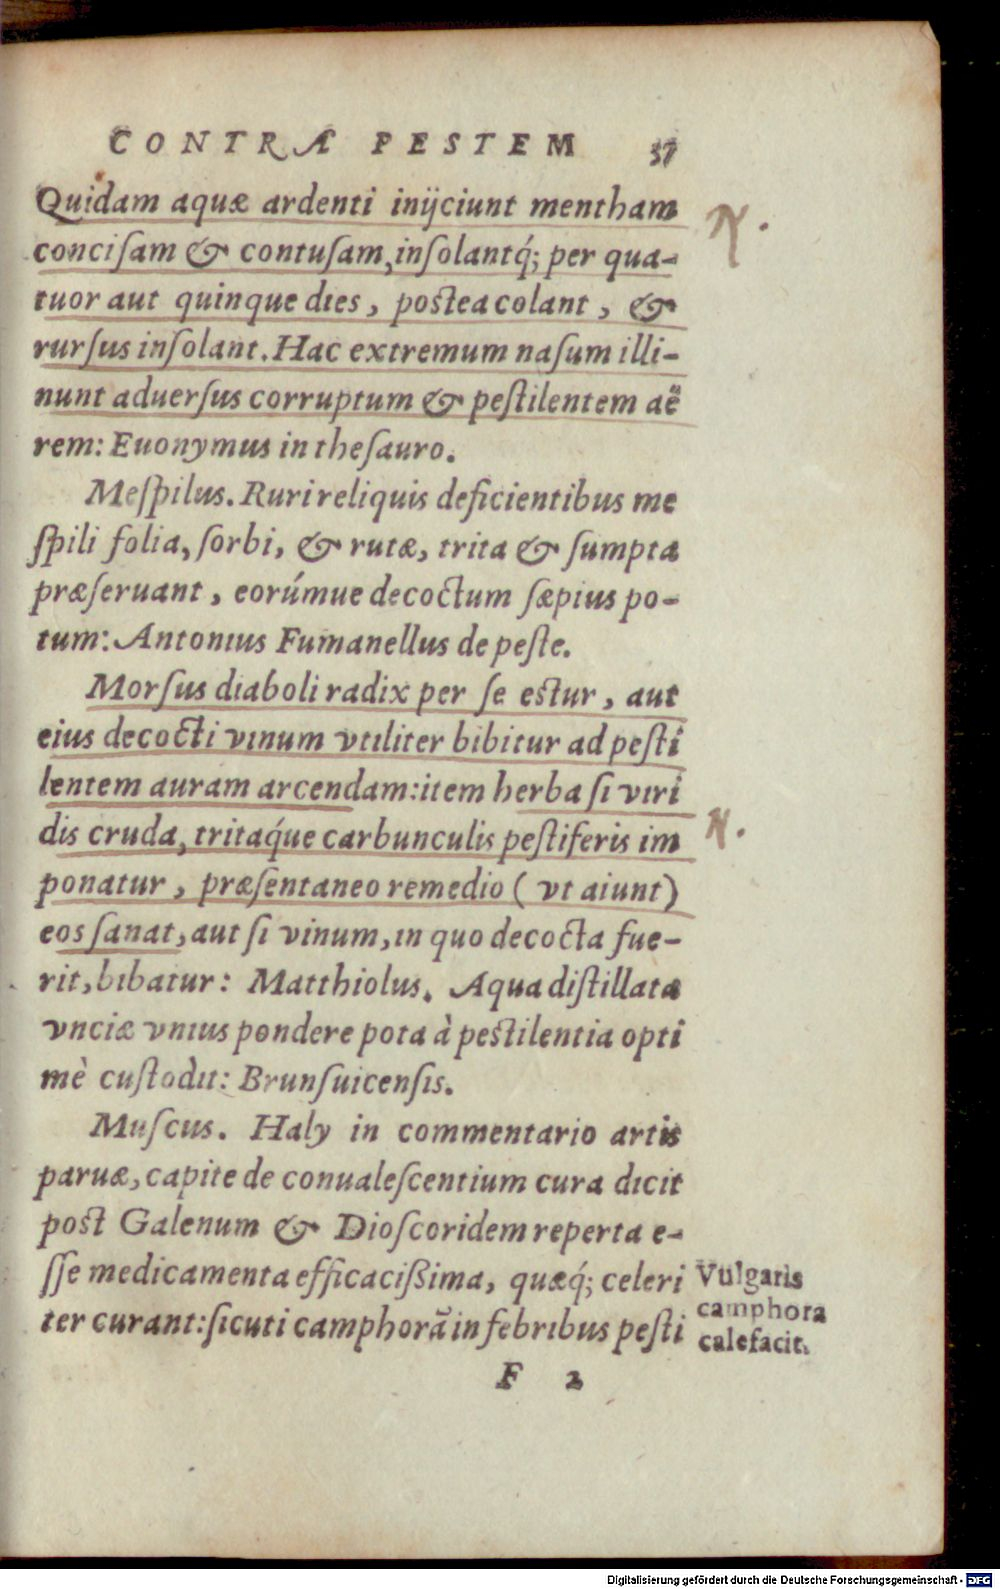 CONTRA PESTEM 37
Quidam aquæ ardenti inijciunt mentham
N.
concisam & contusam, insolantq́; per qua-
tuor aut quinque dies, postea colant, &
rursus insolant. Hac extremum nasum illi-
nunt aduersus corruptum & pestilentem aë
rem: Euonymus in thesauro.
Mespilus. Ruri reliquis deficientibus me
spili folia, sorbi, & rutæ, trita & sumpta
præseruant, eorúmue decoctum sæpius po-
tum: Antonius Fumanellus de peste.
Morsus diaboli radix per se estur, aut
eius decocti vinum vtiliter bibitur ad pesti
lentem auram arcendam: item herba si viri
dis cruda, tritaq́ue carbunculis pestiferis im
N.
ponatur, præsentaneo remedio (vt aiunt)
eos sanat, aut si vinum, in quo decocta fue-
rit, bibatur: Matthiolus. Aqua distillata
vnciæ vnius pondere pota à pestilentia opti
mè custodit: Brunsuicensis.
Muscus. Haly in commentario artis
paruæ, capite de conualescentium cura dicit
post Galenum & Dioscoridem reperta e-
sse medicamenta efficacißima, quæq́; celeri
ter curant: sicuti camphorã in febribus pesti
Vulgaris
camphora
calefacit.
F 2
Digitalisierung gefördert durch die Deutsche Forschungsgemeinschaft - DFG